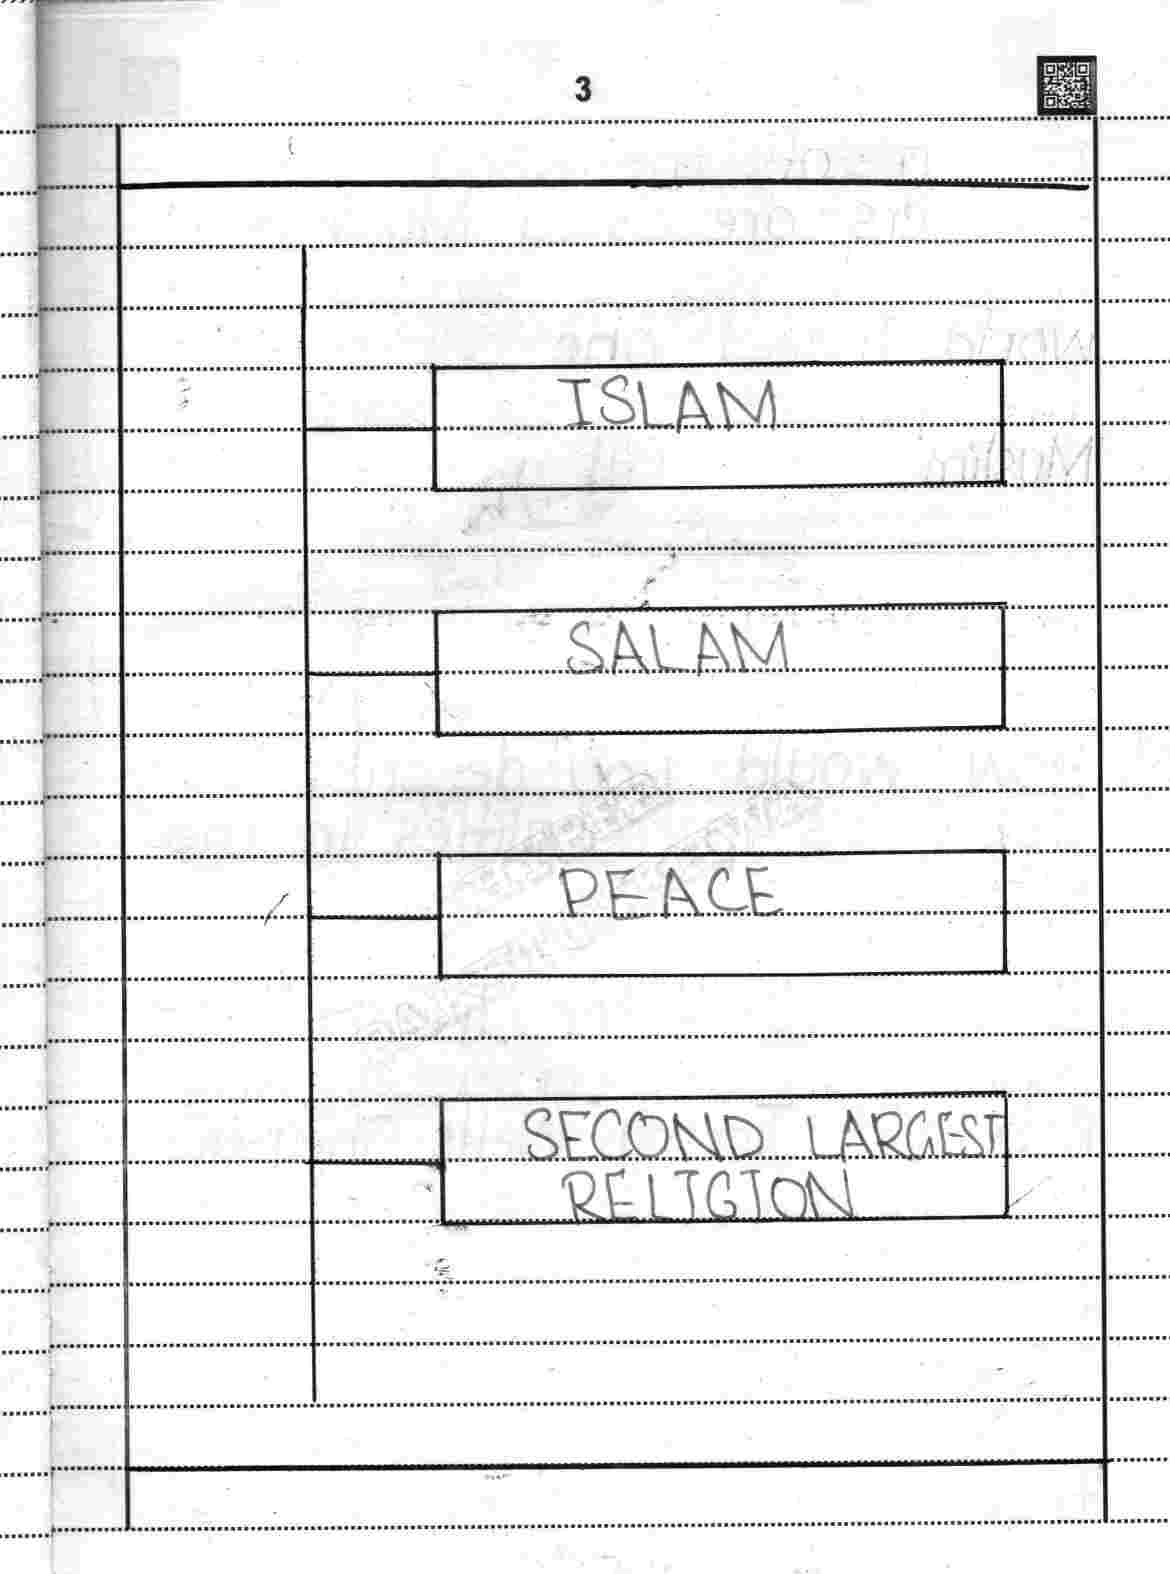 3
ISLAM
SALAM
PEACE
SECOND LARGEST
RELIGION